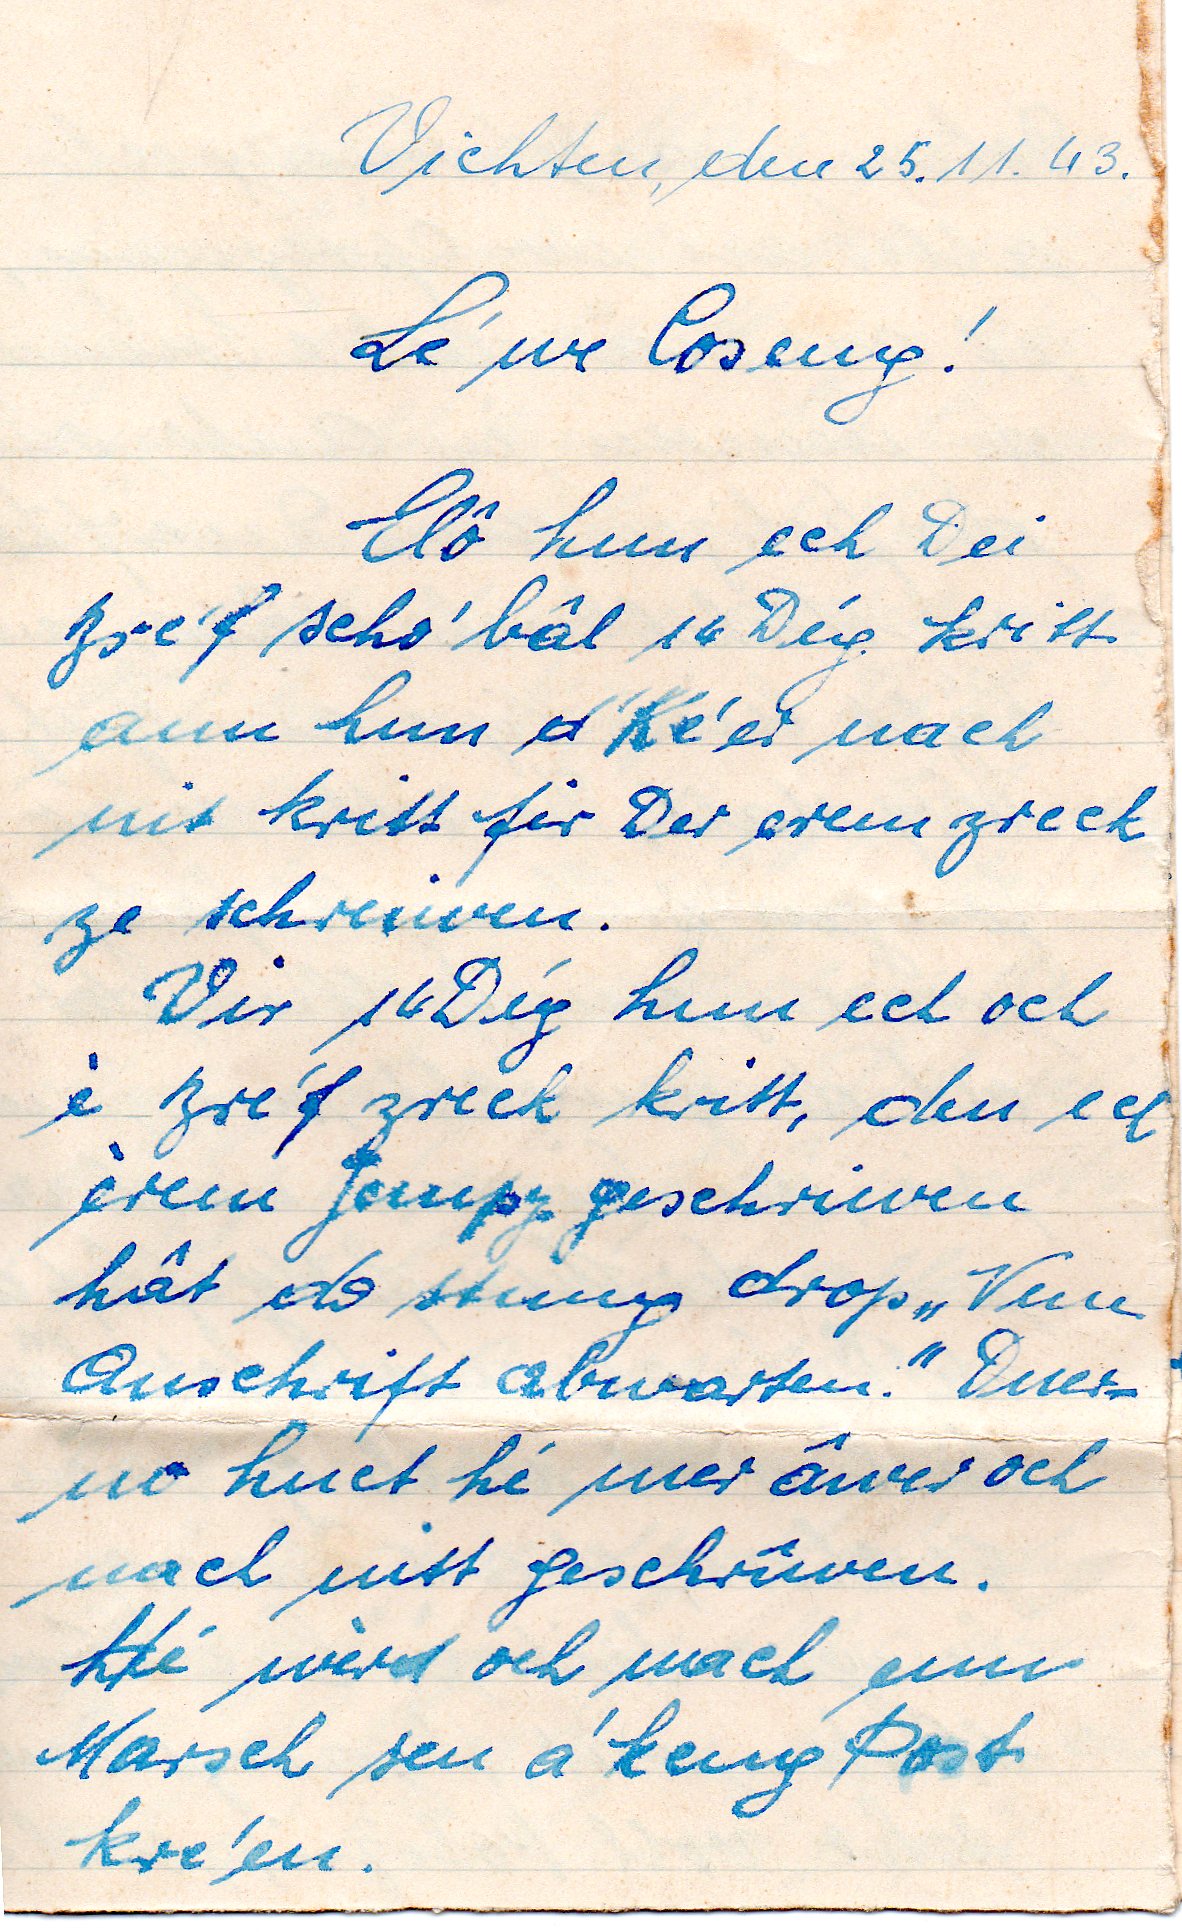 Vichten, den 25.11.43.
Le'we Coseng!
Elô hun ech Dei
Bre'f scho' bâl 14 Deg kritt
ann hun d'Ke'er nach
nit kritt fir Der erem zreck
ze schreiwen.
Vir 14 Deg hun ech och
e Bre'f zreck kritt, den ech
erem Jempy geschriwen
hât do stung drop „Neue
Anschrift abwarten." Duer-
no huet hé mer âwer och
nach nitt geschriwen.
Hé wèrd och nach emm
Marsch sen a' keng Post
kre'en.